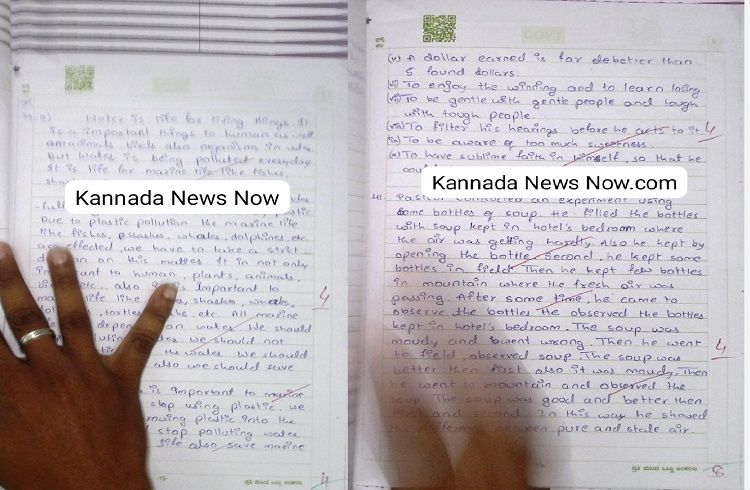 a) Water is life for living things. It
is a important things to human as well
as animals, birds also organisms in water.
But water is being polluted everyday
It is life for marine life like fishes,
Kannada News Now
Due to plastic pollution the marine life
like fishes, shashes, whals, dolphines, etc
are effected, we have to take a strict
on this matter. It in not only
to human, plants, animals,
etc. also it is Important to
life like shashes, whals,
tortles, etc. All marine
depend on water. We should
water. We should not
the water. We should
also we should save
is important to marine
stop using plastic. We
throwing plastic into the
stop polluting water
life also save marine
4
-15-
ಪ್ರತಿ ಪುಟದ ಒಟ್ಟು ಅಂಕಗಳು
4
COPY
(v) A dollar earned is far debetter than
5 found dollars.
vi) To enjoy the winding and to learn losing
vii) To be gentle with gentle people and tough
with tough people.
viii) To filter his hearings before he acts to it.
4
ix) To be aware of too much sweetness.
(x) To have sublime faith in himself, so that he
Kannada News Now.com
41. conducted an experiment using
some bottles of soup. He filled the bottles
with soup kept in hotel's bedroom where
the air was getting hardly. Also he kept by
opening the bottle second. he kept some
bottles in field. Then he kept few bottles
in mountain where the fresh air was
passing. After some time, he came to
observe the bottles. He observed the bottles
kept in hotel's bedroom. The soup was
moudy and went wrong. Then he went
4
to field, observed soup. The soup was
better then first also it was moudy. Then
he went to mountain and observed the
soup. The soup was good and better then
first and second. In this way he showed
the between pure and stale air.
ಪ್ರತಿ ಪುಟದ ಒಟ್ಟು ಅಂಕಗಳು
8